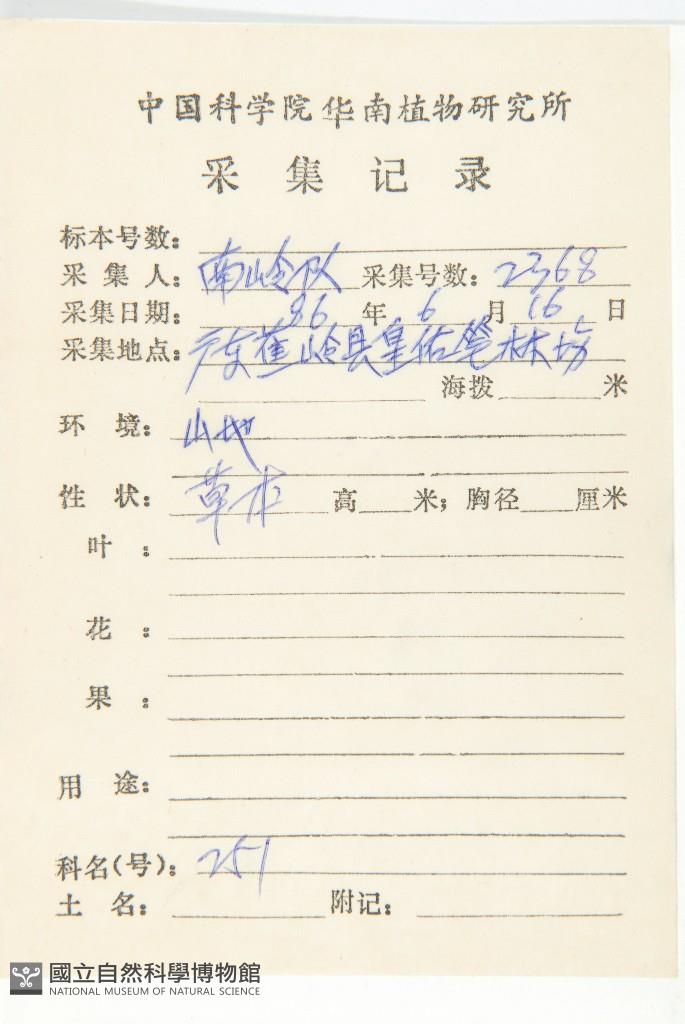 中国科学院华南植物研究所
采集记录
标本号数：
采集人：南岭队 采集号数：2368
采集日期：86年6月16日
采集地点：广东蕉岭县皇佑笔林场
海拨 米
环境：山地
性状：草本 高 米；胸径 厘米
叶：
花：
果：
用途：
科名(号)：251
土名： 附记：
國立自然科學博物館
NATIONAL MUSEUM OF NATURAL SCIENCE